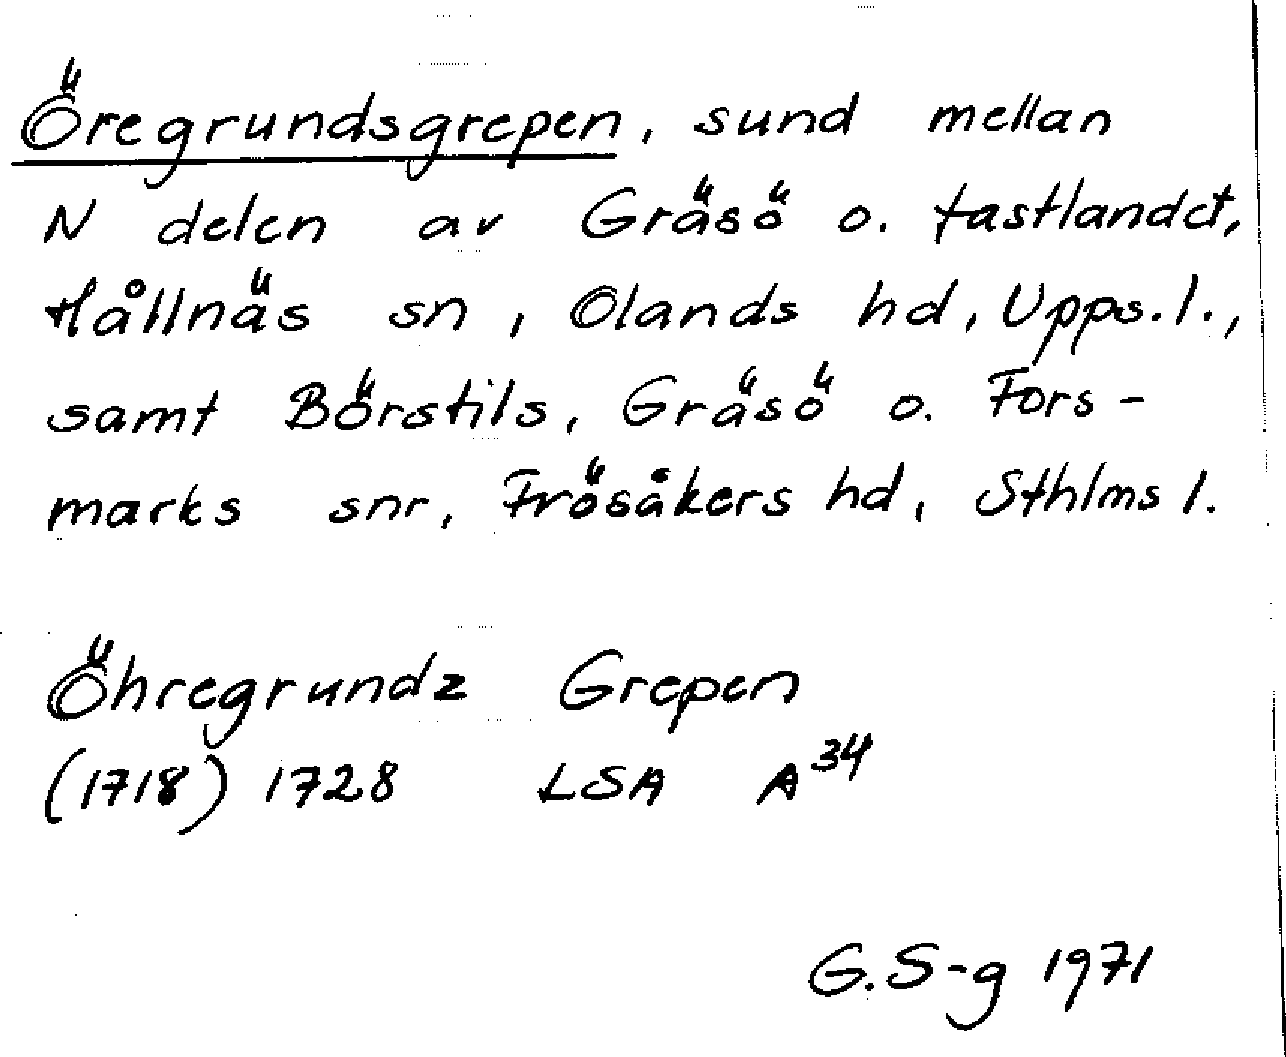 Öregrundsgrepen, sund mellan
N delen av Gräsö o. fastlandet,
Hållnäs sn, Olands hd, Upps. l.,
samt Börstils, Gräsö o. Fors-
marks snr, Frösåkers hd, Sthlms l.
Öhregrundz Grepen
(1718) 1728 LSA A³⁴
G. S-g 1971